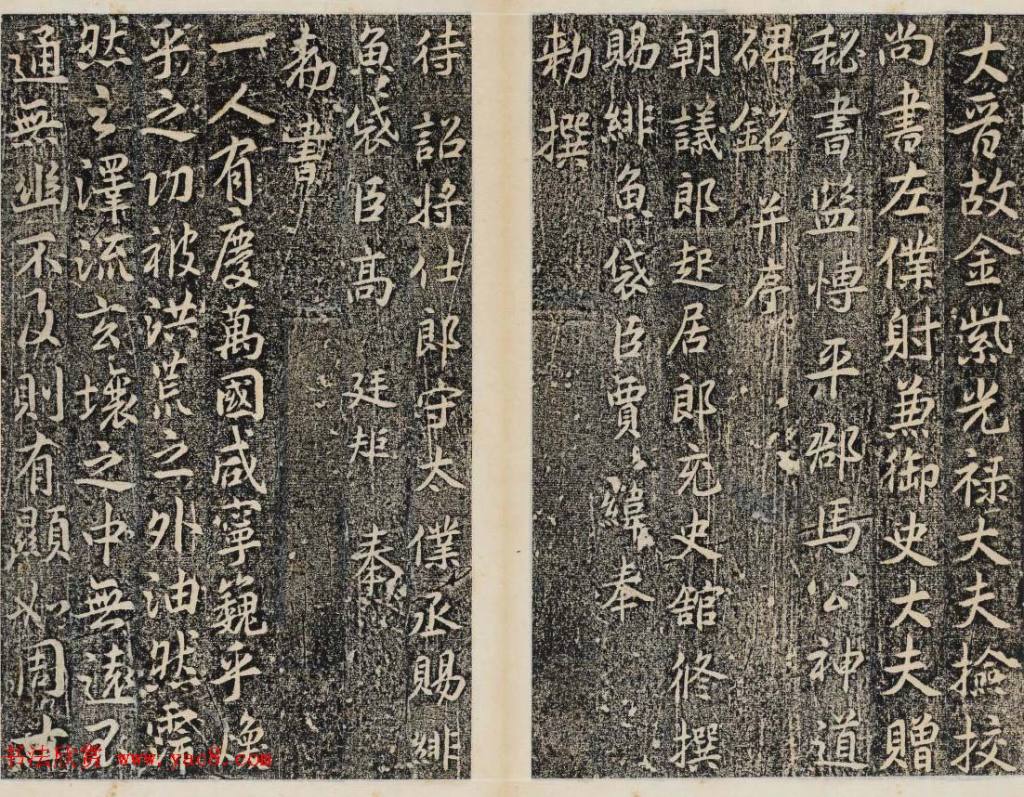 大晉故金紫光祿大夫撿挍
尚書左僕射兼御史大夫贈
秘書監慱平郡馬公神道
碑銘 并序
朝議郎起居郎充史舘修撰
賜緋魚袋臣賈緯奉
勑撰
待詔將仕郎守太僕丞賜緋
魚袋臣高廷矩奉
勑書
一人有慶萬國咸寧巍乎煥
乎之功被洪荒之外油然霈
然之澤流玄壤之中無遠不
通無幽不及則有顯如周
书法欣赏 www.yac8.com